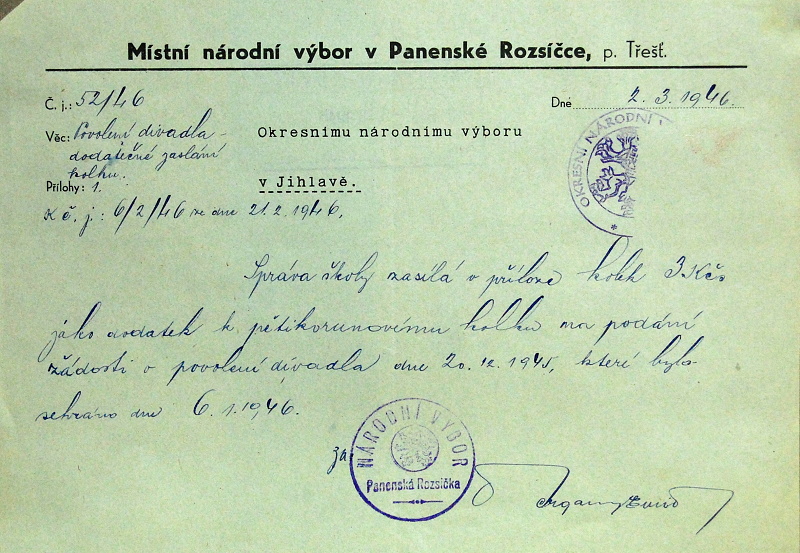 Místní národní výbor v Panenské Rozsíčce, p. Třešť.
Č. j.: 52/46
Dné 2. 3. 1946.
Věc: Povolení divadla -
dodatečné zaslání
kolku.
Okresnímu národnímu výboru
v Jihlavě.
Přílohy: 1.
K č. j.: 6/2/46 ze dne 21. 2. 1946.
OKRESNÍ NÁRODNÍ
Správa školy zasílá v příloze kolek 3 Kčs
jako dodatek k pětikorunovému kolku na podání
žádosti o povolení divadla dne 20. 12. 1945, které bylo
sehráno dne 6. 1. 1946.
za
NÁRODNÍ VÝBOR
Panenská Rozsíčka